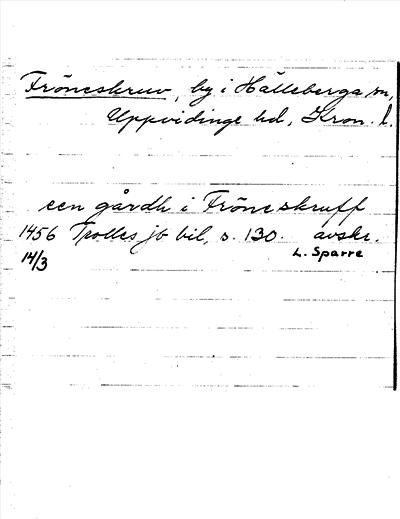 Fröneskruv, by i Hälleberga sn,
Uppvidinge hd, Kron. l.
een gårdh i Fröneskruff
1456 Trolles jb bil, s. 130. avskr.
14/3 L. Sparre